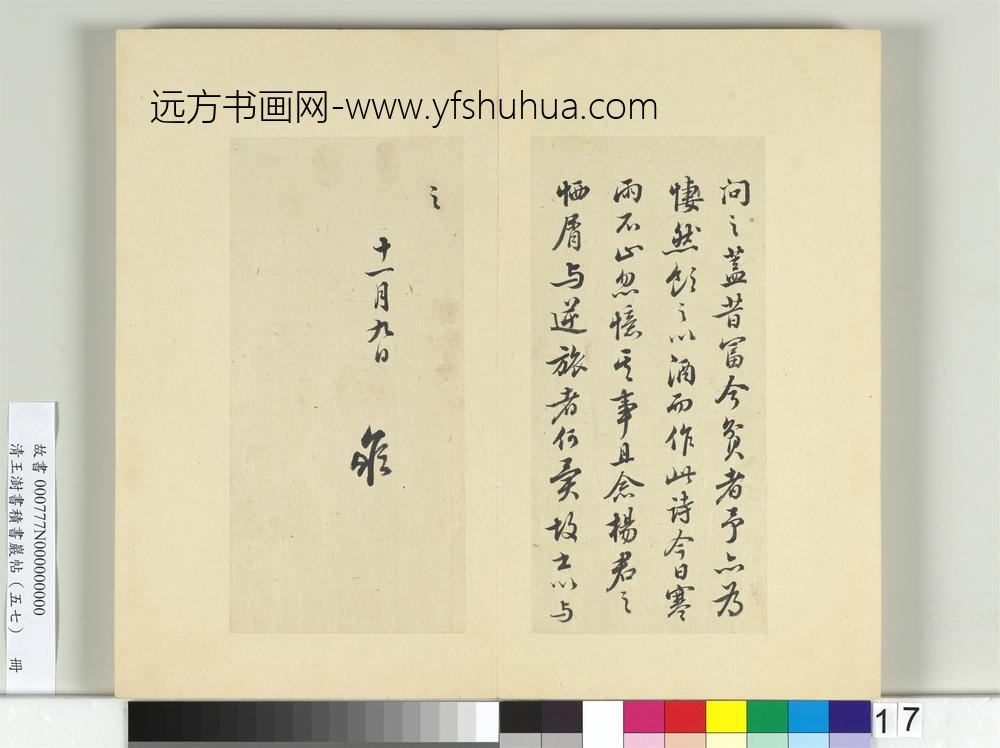 远方书画网-www.yfshuhua.com
问之蓋昔富今貧者予亦為
悽然飲之以酒而作此诗今日寒
雨不止忽憶其事且念楊君之
栖屑与逆旅者何異故書以与
之
十一月九日
故書 000777N000000000
清王澍書積書巖帖（五七） 冊
17